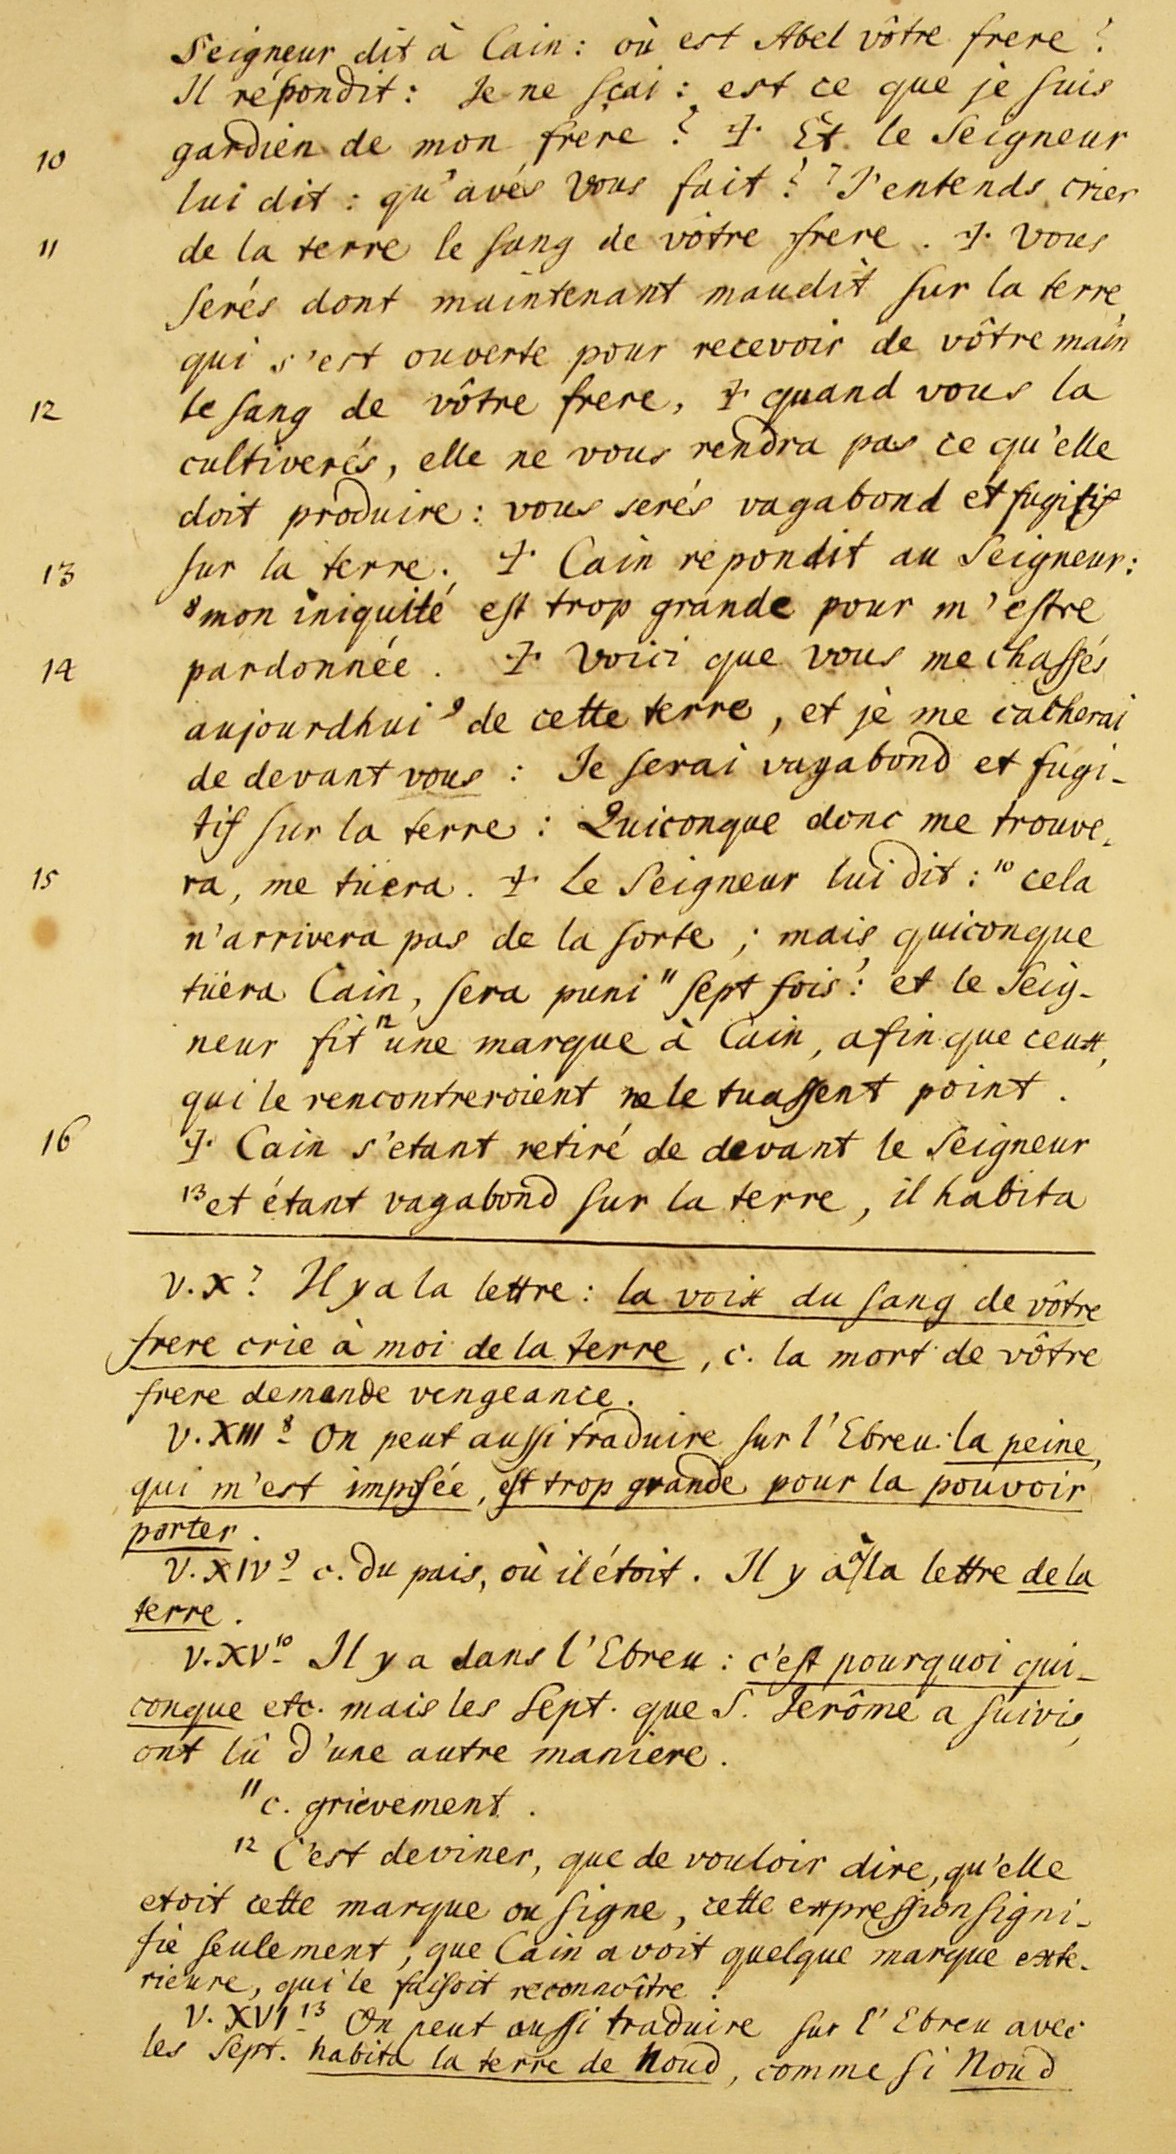 Seigneur dit à Cain : où est Abel vôtre frere ?
Il répondit : Je ne sçai : est ce que je suis
10 gardien de mon frere ? ⁒ Et le Seigneur
lui dit : qu'avés vous fait ? ⁷ J'entends crier
11 de la terre le sang de vôtre frere . ⁒ Vous
serés dont maintenant maudit sur la terre,
qui s'est ouverte pour recevoir de vôtre main
12 le sang de vôtre frere, ⁒ quand vous la
cultiverés, elle ne vous rendra pas ce qu'elle
doit produire : vous serés vagabond et fugitif
13 sur la terre . ⁒ Cain repondit au Seigneur :
⁸ mon iniquité est trop grande pour m'estre
14 pardonnée . ⁒ Voici que vous me chassés
aujourdhui ⁹ de cette terre, et je me cacherai
de devant vous : Je serai vagabond et fugi-
tif sur la terre : Quiconque donc me trouve-
15 ra, me tüera . ⁒ Le Seigneur lui dit : ¹⁰ cela
n'arrivera pas de la sorte ; mais quiconque
tüera Cain, sera puni ¹¹ sept fois : et le Seig-
neur fit ¹² une marque à Cain, afin que ceux,
qui le rencontreroient ne le tuassent point .
16 ⁒ Cain s'etant retiré de devant le Seigneur
¹³ et étant vagabond sur la terre, il habita
V. X ⁷ Il y a la lettre : la voix du sang de vôtre
frere crie à moi de la terre, c. la mort de vôtre
frere demande vengeance .
V. XIII ⁸ On peut aussi traduire sur l'Ebreu : la peine,
qui m'est imposée, est trop grande pour la pouvoir
porter .
V. XIV ⁹ c. du pais, où il étoit . Il y a à la lettre de la
terre .
V. XV ¹⁰ Il y a dans l'Ebreu : c'est pourquoi qui-
conque etc. mais les Sept. que S. Jerôme a suivis,
ont lû d'une autre maniere .
¹¹ c. grievement .
¹² C'est deviner, que de vouloir dire, qu'elle
etoit cette marque ou signe, cette expression signi-
fie seulement, que Cain avoit quelque marque exte-
rieure, qui le faisoit reconnoître .
V. XVI ¹³ On peut aussi traduire sur l'Ebreu avec
les Sept. habita la terre de Noud, comme si Noud